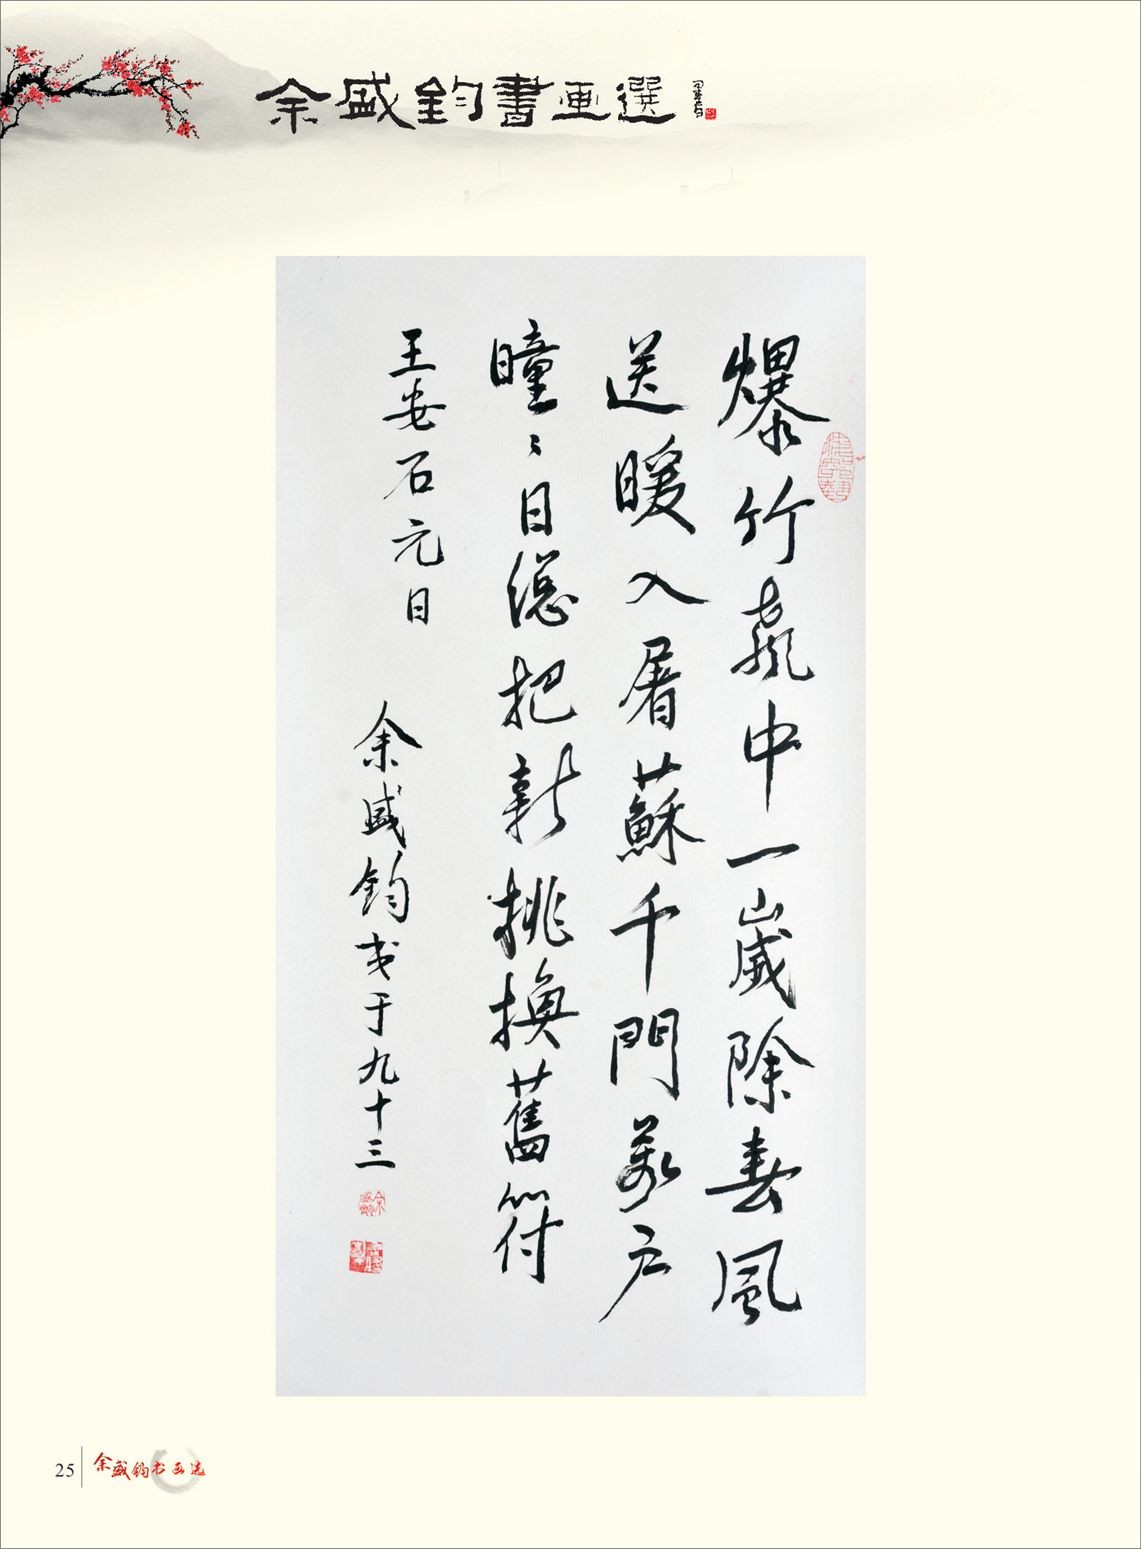 余盛钧書画選
爆竹聲中一歲除春風
送暖入屠蘇千門萬戶
曈〻日總把新桃換舊符
王安石元日
余盛鈞書于九十三
25
余盛钧书画选